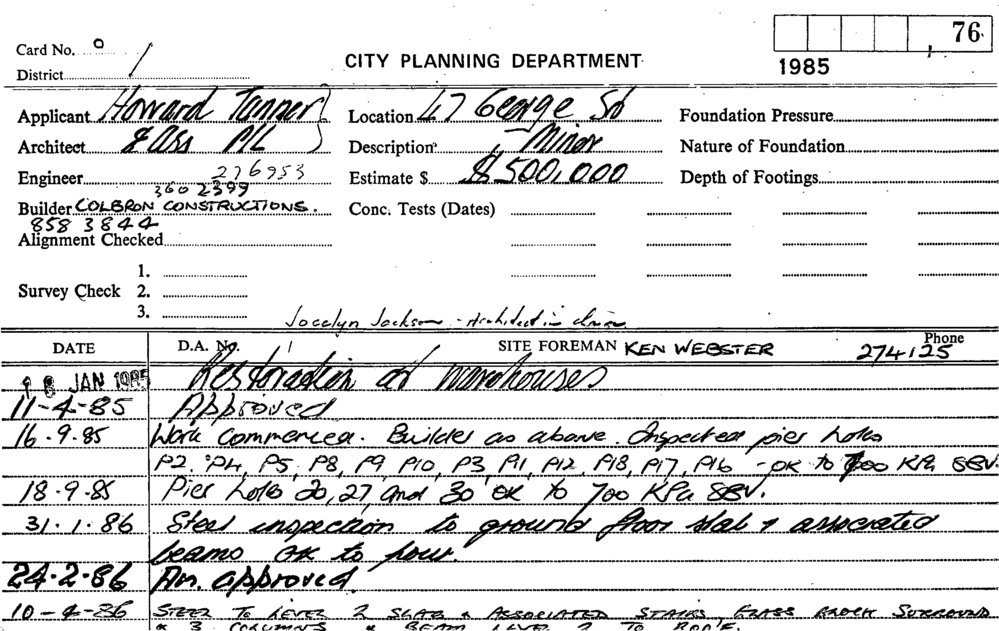 76
Card No. 0
1985
CITY PLANNING DEPARTMENT
District /
Applicant Howard Tanner
Location 47 George St
Foundation Pressure
Architect & Ass P/L
Description Minor
Nature of Foundation
Engineer 276953
Estimate $ $500,000
Depth of Footings
360 2399
Builder COLBRON CONSTRUCTIONS.
Conc. Tests (Dates)
858 3844
Alignment Checked
1.
Survey Check 2.
3.
Jocelyn Jackson - Architect in charge
DATE D.A. No. SITE FOREMAN KEN WEBSTER Phone 274125
18 JAN 1985 Restoration of warehouses
11-4-85 Approved
16.9.85 Work commenced. Builder as above. Inspected pier holes
P2, P4, P5, P8, P9 P10, P3, P11, P12, P18, P17, P16 - OK to 700 KPa SBV.
18.9.85 Pier holes 20, 27 and 30 OK to 700 KPa SBV.
31.1.86 Steel inspection to ground floor slab & associated
beams OK to pour.
24.2.86 Am. approved.
10-4-86 STEEL TO LEVEL 2 SLAB & ASSOCIATED STAIRS, GLASS BLOCK SURROUND
& 3 COLUMNS & BEAM LEVEL 2 TO ROOF.